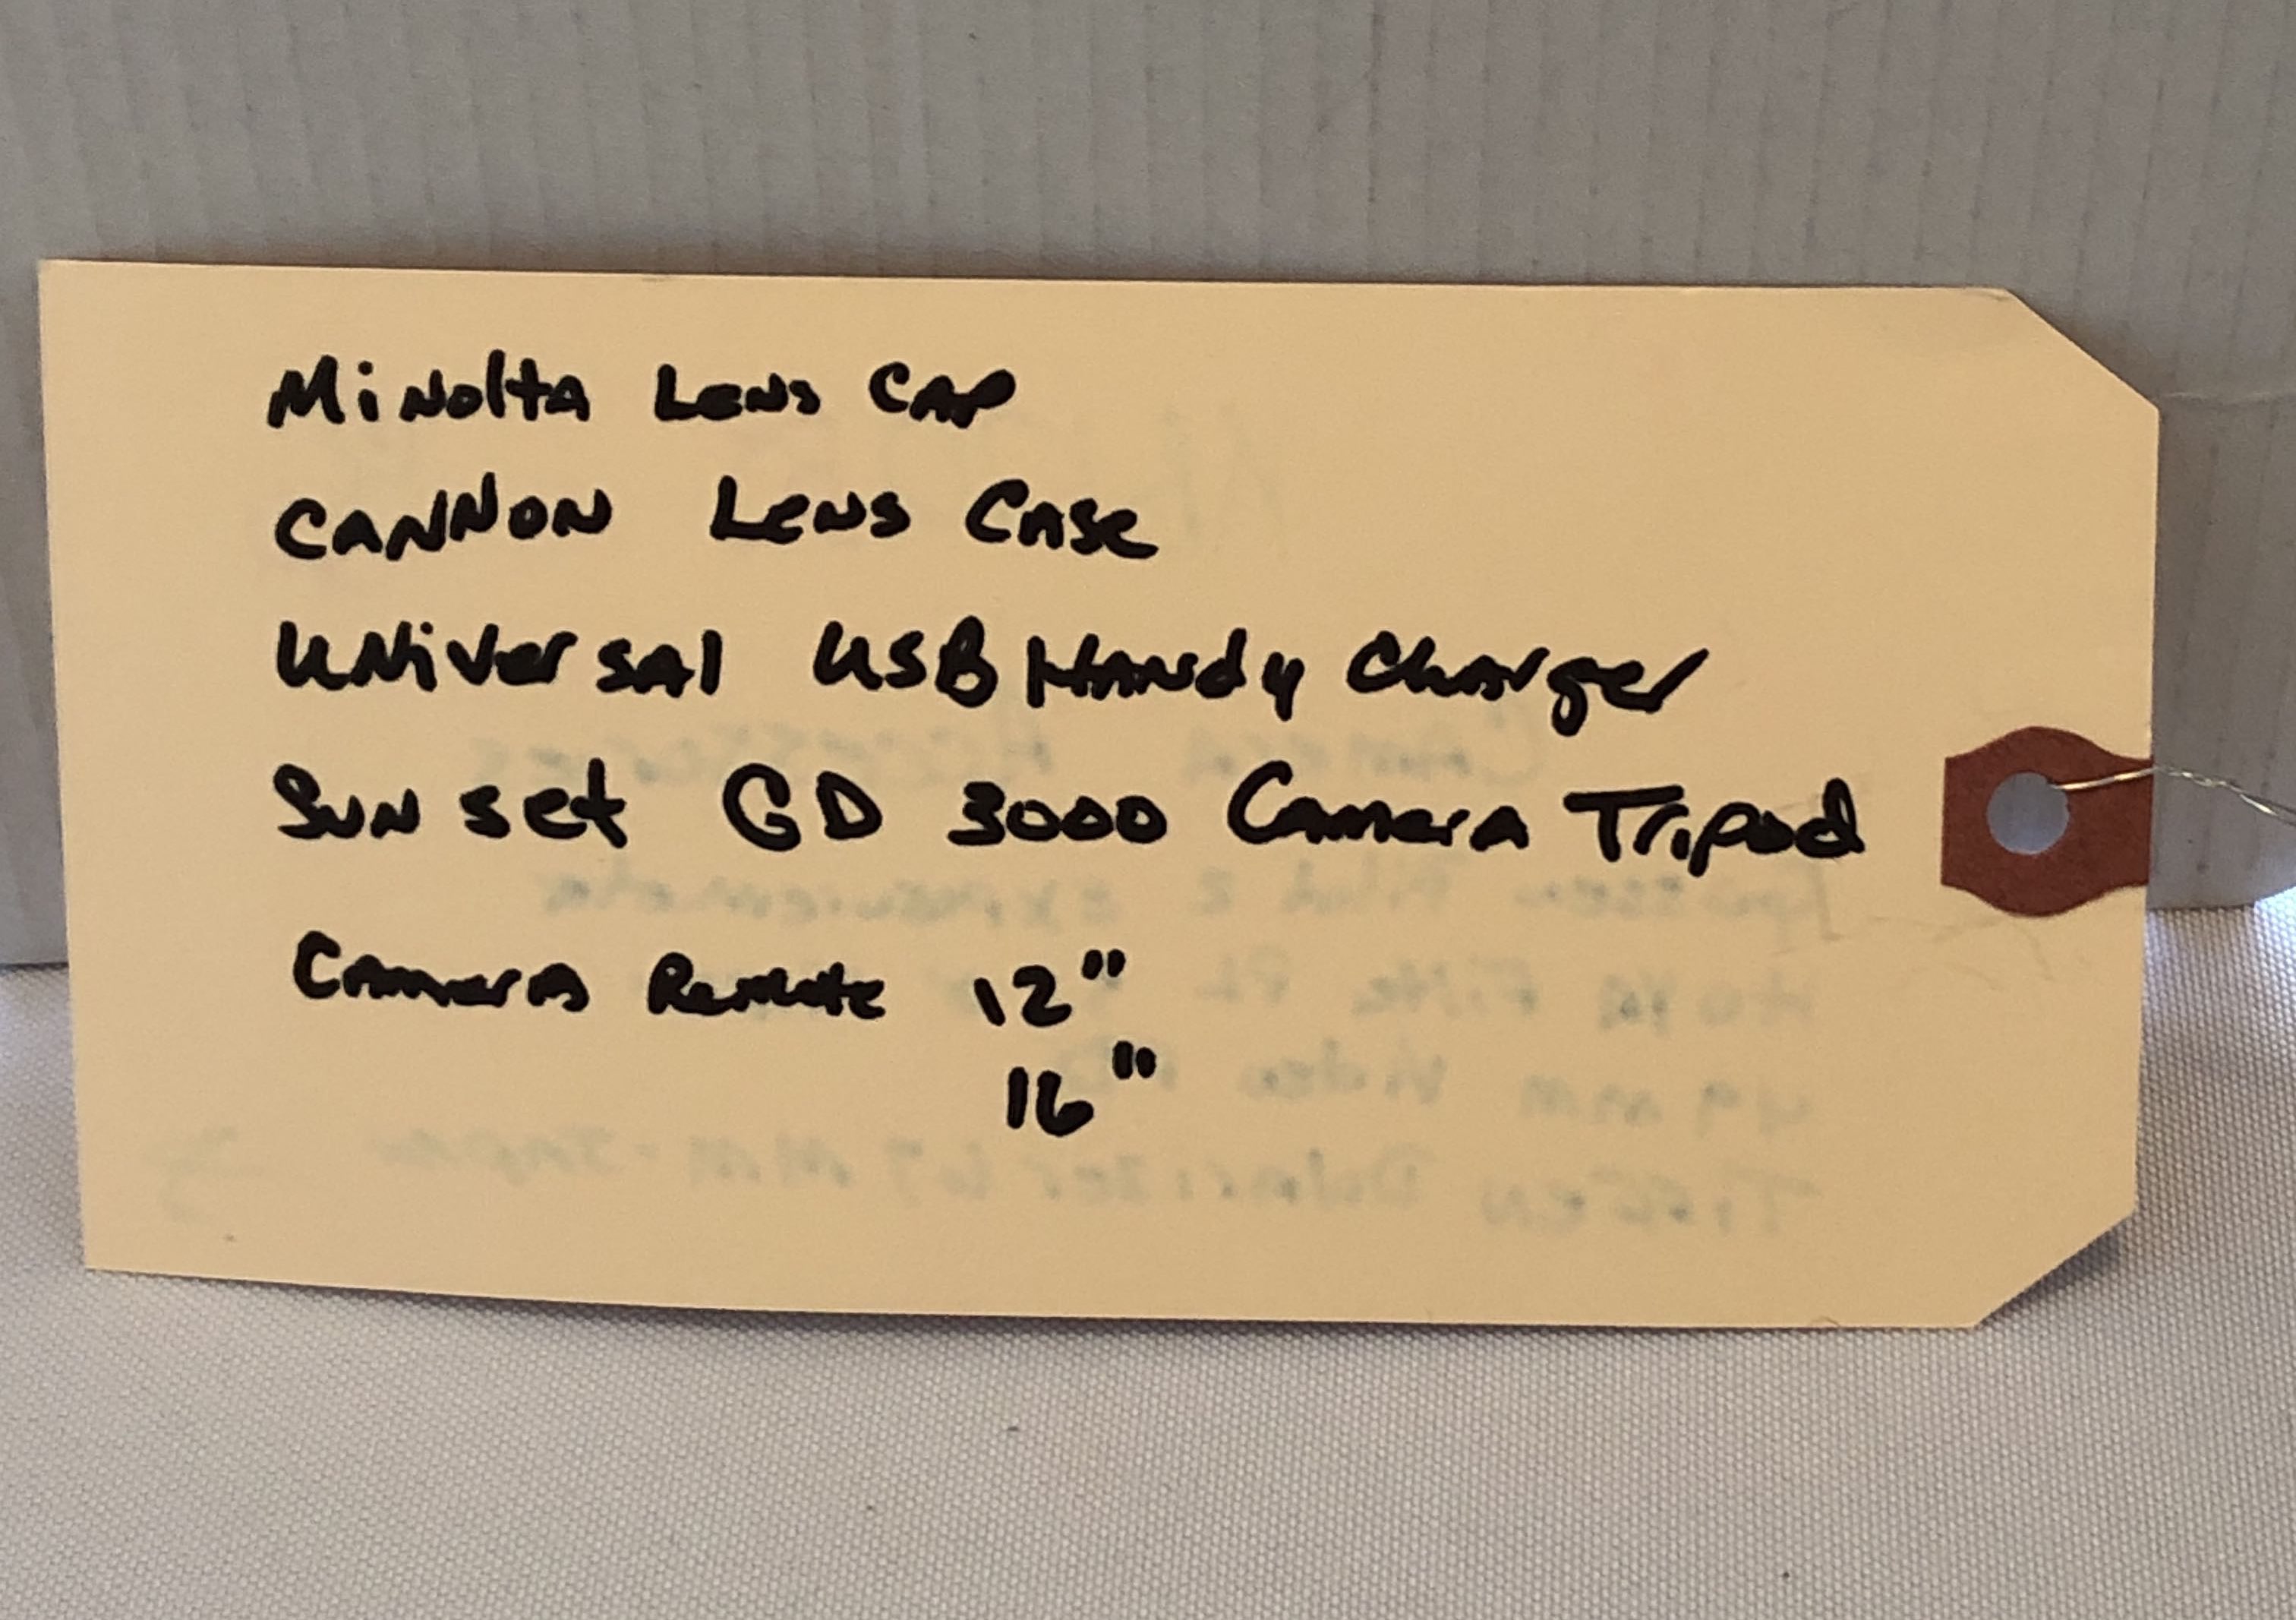 Minolta Lens Cap
Cannon Lens Case
Universal USB Handy Charger
Sunset GD 3000 Camera Tripod
Camera Remote 12"
16"